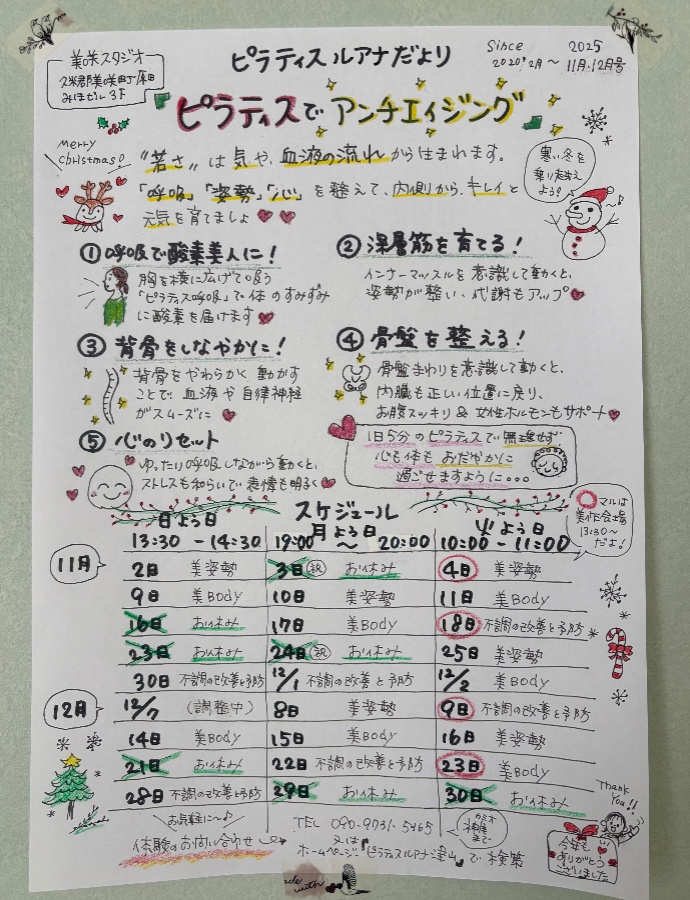 美咲スタジオ
久米郡美咲町原田
みほビル 3F
ピラティス ルアナだより
Since 2020年2月〜
2025
11月・12月号
ピラティスでアンチエイジング
merry
christmas!
"若さ"は気や、血液の流れから生まれます。
「呼吸」「姿勢」「心」を整えて、内側からキレイと
元気を育てましょ
寒い冬を
乗り越え
よう!
①呼吸で酸素美人に!
胸を横に広げて吸う
「ピラティス呼吸」で体のすみずみ
に酸素を届けます
②深層筋を育てる!
インナーマッスルを意識して動くと、
姿勢が整い、代謝もアップ
③背骨をしなやかに!
背骨をやわらかく動かす
ことで血液や自律神経
がスムーズに
④骨盤を整える!
骨盤まわりを意識して動くと、
内臓も正しい位置に戻り、
お腹スッキリ & 女性ホルモンもサポート
⑤心のリセット
ゆったり呼吸しながら動くと、
ストレスも和らいで表情も明るく
1日5分のピラティスで無理せず
心も体もおだやかに
過ごせますように。。。
スケジュール
日よう日 月よう日 火よう日
13:30 - 14:30 19:00 〜 20:00 10:00 - 11:00
マルは
美作会場
13:30〜
だよ!
11月
2日 美姿勢 3日(祝) お休み 4日 美姿勢
9日 美BODY 10日 美姿勢 11日 美BODY
16日 お休み 17日 美BODY 18日 不調の改善と予防
23日 お休み 24日(祝) お休み 25日 美姿勢
30日 不調の改善と予防 12/1 不調の改善と予防 12/2 美BODY
12月
12/7 (調整中) 8日 美姿勢 9日 不調の改善と予防
14日 美BODY 15日 美BODY 16日 美姿勢
21日 お休み 22日 不調の改善と予防 23日 美BODY
28日 不調の改善と予防 29日 お休み 30日 お休み
お気軽に〜♪
体験のお問い合わせ
TEL 090-9731-5365
又は
ホームページ「ピラティスルアナ津山」で検索
まで
Thank
You!!
今年も
ありがとう
ございました
made
with